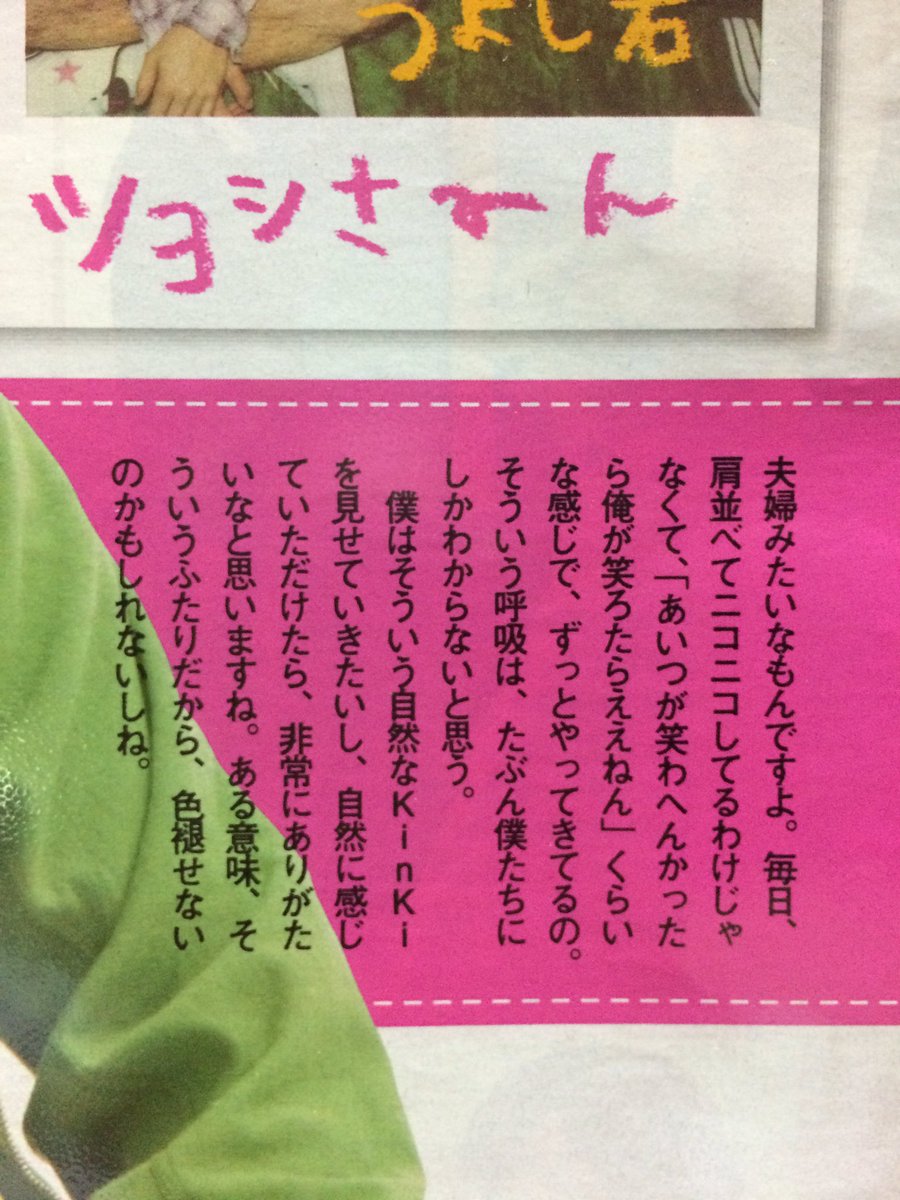 つよし君
ツヨシさーん
夫婦みたいなもんですよ。毎日、
肩並べてニコニコしてるわけじゃ
なくて、「あいつが笑わへんかった
ら俺が笑ろたらええねん」くらい
な感じで、ずっとやってきてるの。
そういう呼吸は、たぶん僕たちに
しかわからないと思う。
僕はそういう自然なKinKi
を見せていきたいし、自然に感じ
ていただけたら、非常にありがた
いなと思いますね。ある意味、そ
ういうふたりだから、色褪せない
のかもしれないしね。